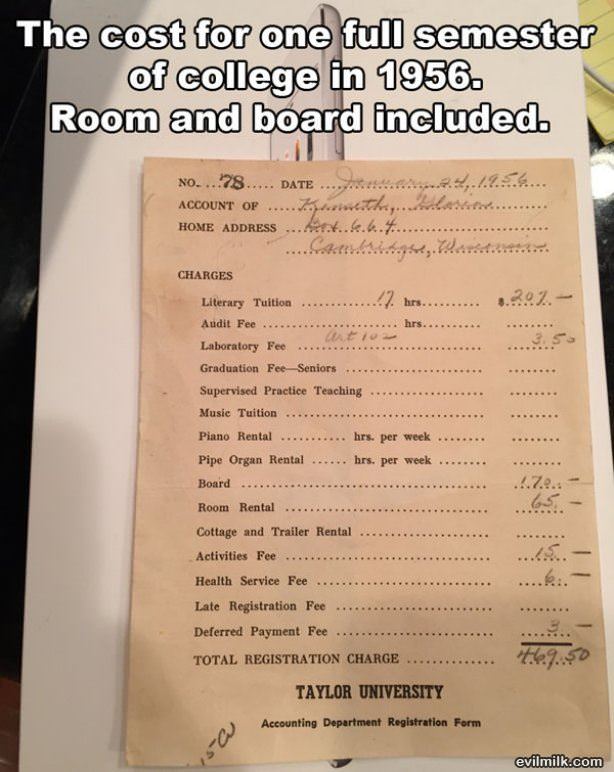 The cost for one full semester
of college in 1956.
Room and board included.
NO. ...78..... DATE ...January 24, 1956...
ACCOUNT OF ...Kenneth,
HOME ADDRESS ...Box 664
Cambridge, Wisconsin
CHARGES
Literary Tuition .............. 17 hrs.......... $ 207.—
Audit Fee .......................... hrs..........
Laboratory Fee ...... Art 102 ...... 3.50
Graduation Fee—Seniors ..........................
Supervised Practice Teaching ..........................
Music Tuition ..........................
Piano Rental ........... hrs. per week ..........
Pipe Organ Rental ...... hrs. per week ..........
Board .......................... 170.—
Room Rental .......................... 65.—
Cottage and Trailer Rental ..........................
Activities Fee .......................... 15.—
Health Service Fee .......................... 6.—
Late Registration Fee ..........................
Deferred Payment Fee .......................... 3.—
TOTAL REGISTRATION CHARGE .............. 469.50
TAYLOR UNIVERSITY
Accounting Department Registration Form
evilmilk.com